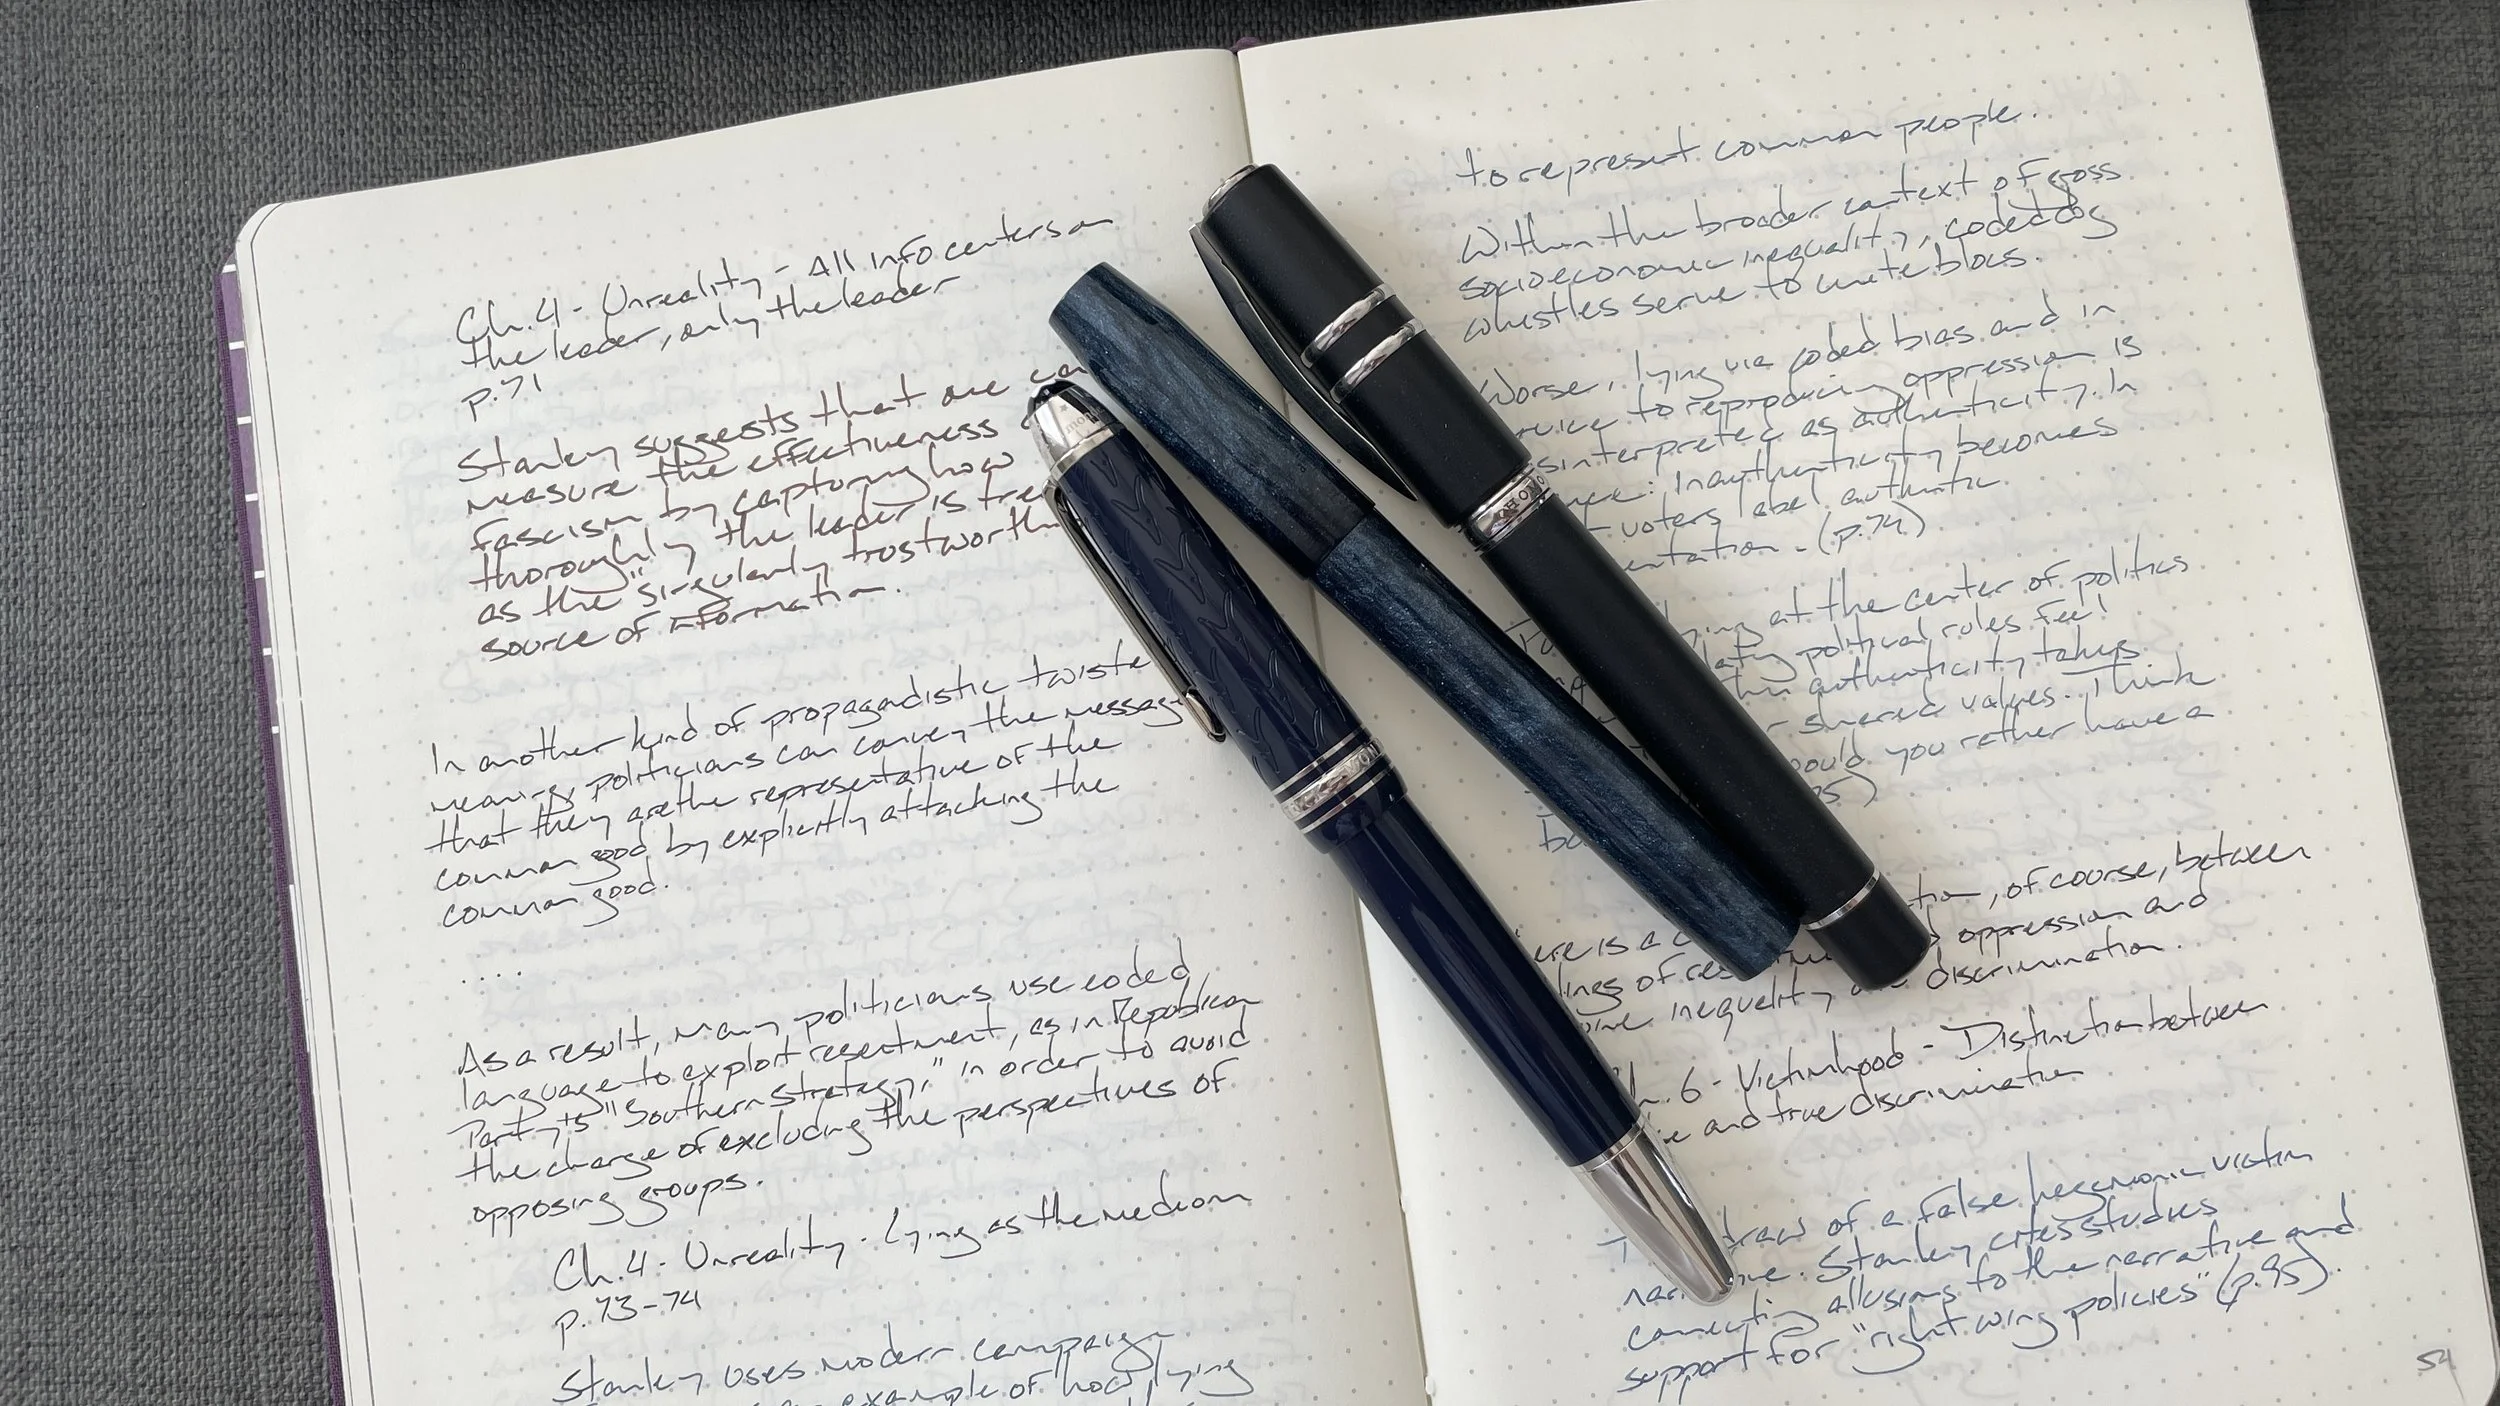 Ch. 4 - Unreality - All info centers on
the leader, only the leader
p. 71
Stanley suggests that one can
measure the effectiveness
fascism by capturing how
thoroughly the leader is tre
as the "singularly trustworth
source of information.
In another kind of propagandistic twiste
meaning, politicians can convey the message
that they are the representative of the
common good by explicitly attacking the
common good.
....
As a result, many politicians use coded
language to exploit resentment, as in Republican
Party's "Southern Strategy," in order to avoid
the charge of excluding the perspectives of
opposing groups.
Ch. 4 - Unreality - lying as the medium
p. 73-74
Stanley uses modern campaign
example of how lying
to represent common people.
Within the broader context of gross
socioeconomic inequality, coded dog
whistles serve to unite blocs.
Worse, lying via coded bias and in
service to reproducing oppression is
misinterpreted as authenticity. In
: Inauthenticity becomes
t voters label authentic
entation. (p. 74)
ying at the center of politics
political rules feel
authenticity takes
r shared values. Think
would you rather have a
95)
be
ere is a c tion, of course, between
lings of res oppression and
inequality and discrimination.
Ch. 6 - Victimhood - Distinction between
and true discrimination
T draw of a false hegemonic victim
narrative. Stanley cites studies
connecting allusions to the narrative and
support for "right wing policies" (p. 95).
54
mont